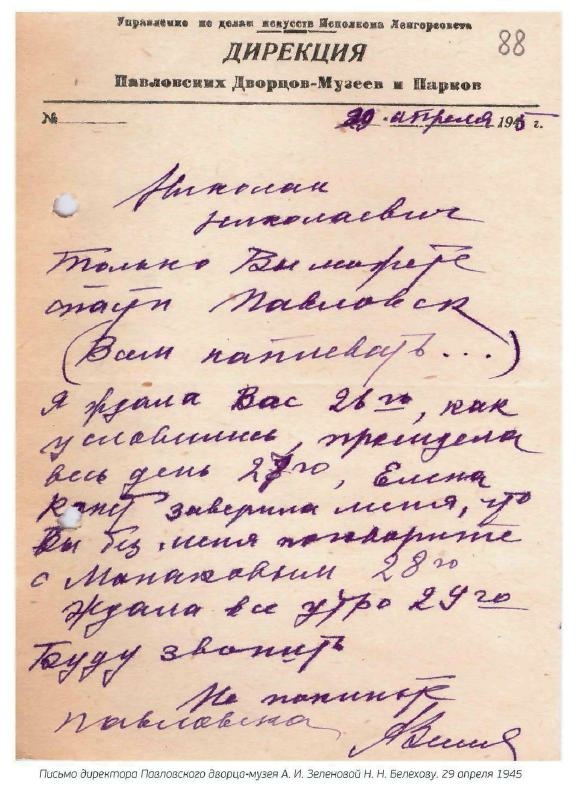 Управление по делам искусств Исполкома Ленгорсовета
88
ДИРЕКЦИЯ
Павловских Дворцов-Музеев и Парков
№ 29 апреля 1945 г.
Николай
Николаевич
Только Вы можете
спасти Павловск
(Вам наплевать...)
Я ждала Вас 26го, как
условились, просидела
весь день 27го, Елена
заверила меня, что
Вы без меня поговорите
с Монаховым 28го
Ждала все утро 29го
Буду звонить
Не покиньте
Павловска
АЗеленова
Письмо директора Павловского дворца-музея А. И. Зеленовой Н. Н. Белехову. 29 апреля 1945